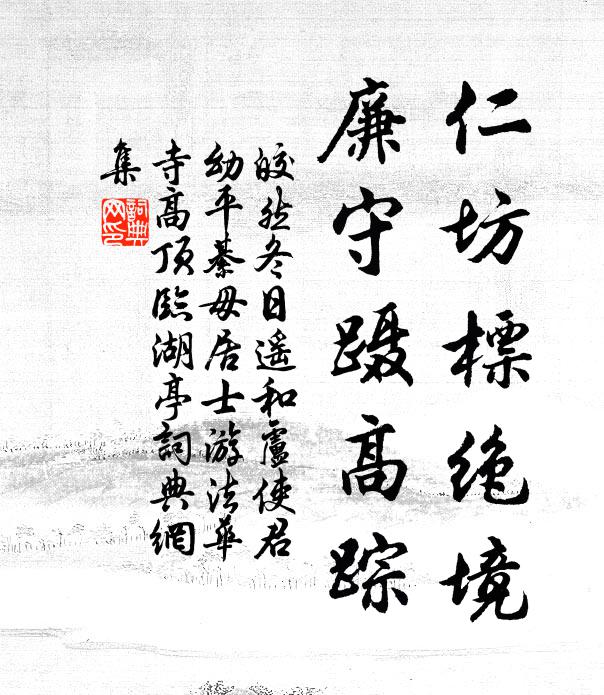 仁坊標绝境
廉守蹑高踪
皎然冬日遥和盧使君
幼平綦毋居士游法華
寺高頂臨湖亭詞典網
集
詞典網印